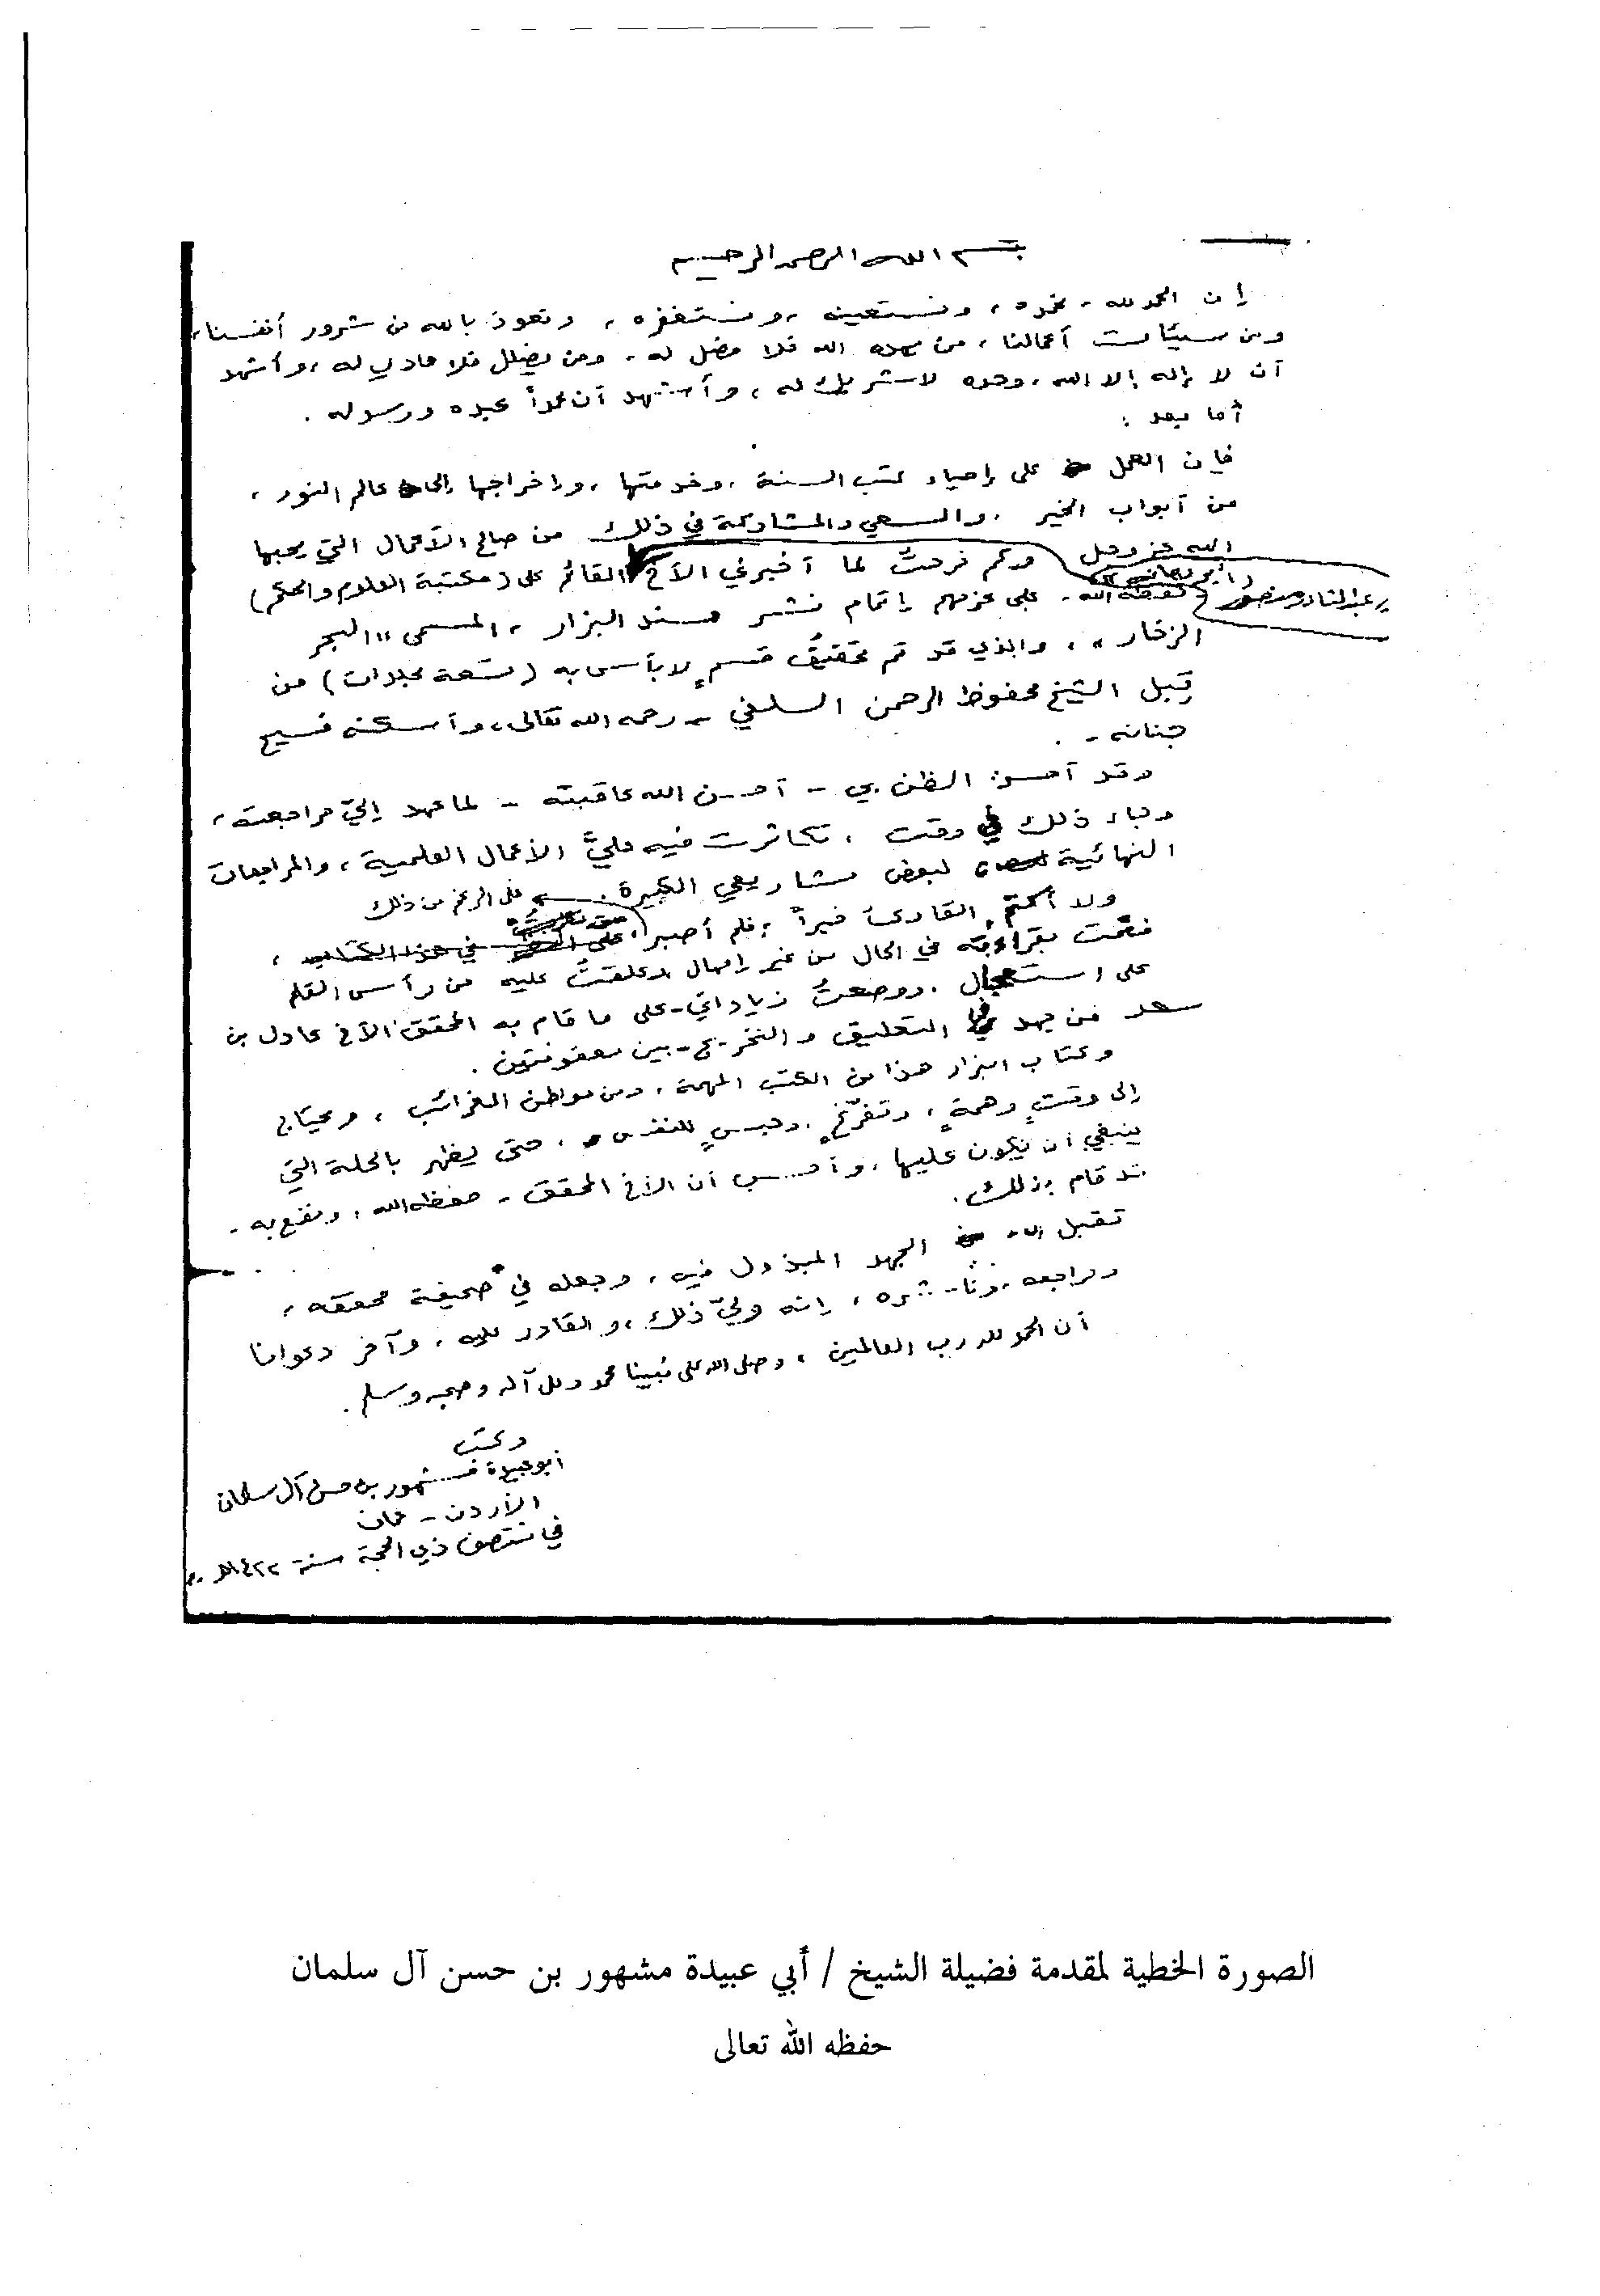 بسم الله الرحمن الرحيم
إن الحمد لله، نحمده، ونستعينه، ونستغفره، ونعوذ بالله من شرور أنفسنا،
ومن سيئات أعمالنا، من يهده الله فلا مضل له، ومن يضلل فلا هادي له، وأشهد
أن لا إله إلا الله، وحده لا شريك له، وأشهد أن محمداً عبده ورسوله.
أما بعد:
فإن العمل على إحياء كتب السنة، وخدمتها، وإخراجها إلى عالم النور،
من أبواب الخير، والسعي والمشاركة في ذلك من صالح الأعمال التي يحبها
الله عز وجل وكم فرحتُ لما أخبرني الأخ القائم على (مكتبة العلوم والحكم)
/ عبد القادر منصور
حفظه الله - على عزمهم إتمام نشر مسند البزار، المسمى "البحر
الزخار"، والذي قد تم تحقيقُ قسمٍ لا بأس به (تسعة مجلدات) من
قِبل الشيخ محفوظ الرحمن السلفي - رحمه الله تعالى، وأسكنه فسيح
جنانه - .
وقد أحسن الظن بي - أحسن الله عاقبته - لما عهد إليّ مراجعته،
وجاء ذلك في وقت، تكاثرت فيه عليَّ الأعمال العلمية، والمراجعات
النهائية لبعض مشاريعي الكبيرة. على الرغم من ذلك
ولا أكتم القارئ خبراً؛ فلم أصبر،
فقمت بقراءته في الحال من غير إمهال وعلقتُ عليه من رأس القلم
على استعجال، ووضعتُ زياداتي - على ما قام به المحقق الأخ عادل بن
سعد من جهد في التعليق والتخريج - بين معقوفتين.
وكتاب البزار هذا من الكتب المهمة، ومن مواطن الغرائب، ويحتاج
إلى وقتٍ وهمةٍ، وتفرّغٍ، وحبسٍ للنفس، حتى يظهر بالحلة التي
ينبغي أن يكون عليها، وأحسب أن الأخ المحقق - حفظه الله، ونفع به -
قد قام بذلك.
تقبل الله الجهد المبذول فيه، وجعله في صحيفة محققه،
ومراجعه، وناشره، إنه وليّ ذلك، والقادر عليه، وآخر دعوانا
أن الحمد لله رب العالمين، وصلى الله على نبينا محمد وعلى آله وصحبه وسلم.
وكتب
أبو عبيدة مشهور بن حسن آل سلمان
الأردن - عمان
في منتصف ذي الحجة سنة ١٤٢٢هـ.
الصورة الخطية لمقدمة فضيلة الشيخ / أبي عبيدة مشهور بن حسن آل سلمان
حفظه الله تعالى